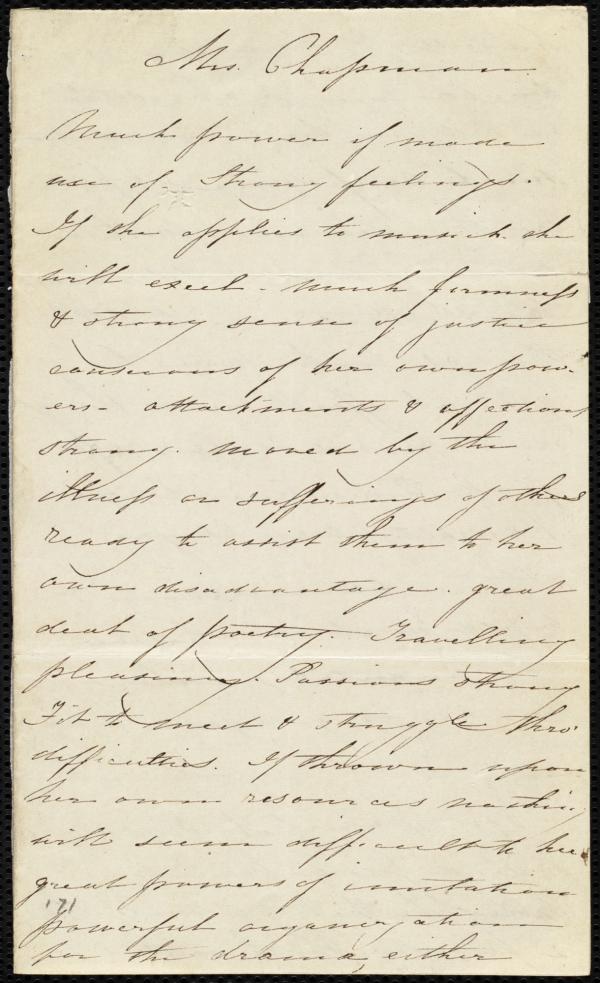 Mrs. Chapman
Much power if made
use of Strong feelings.
If she applies to musick she
will excel - much firmness
& strong sense of justice
conscious of her own pow-
ers - attachments & affections
strong. moved by the
illness or sufferings of others
ready to assist them to her
own disadvantage. great
deal of poetry. Travelling
pleasing. Passions strong
Fit to meet & struggle thro'
difficulties. If thrown upon
her own resources nothing
will seem difficult to her
great powers of imitation
171
powerful organization
for the drama, either